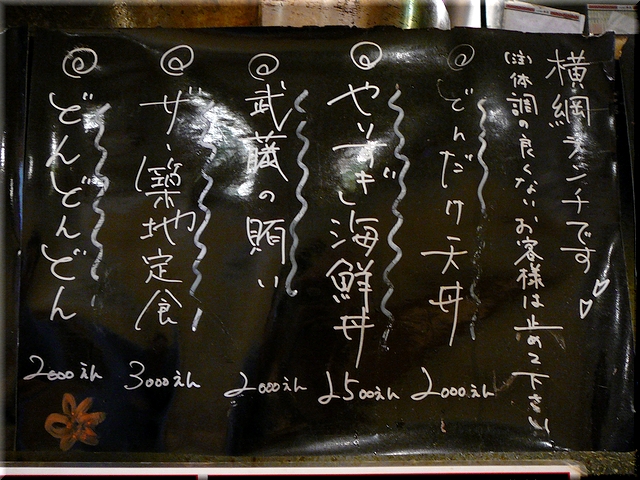 横綱ランチです♡♡
(注)体調の良くないお客様は止めて下さい
◎どんだけ天丼
2000えん
◎やりすぎ海鮮丼
2500えん
◎武蔵の賄い
2000えん
◎ザ・築地定食
3000えん
◎どんどんどん
2000えん